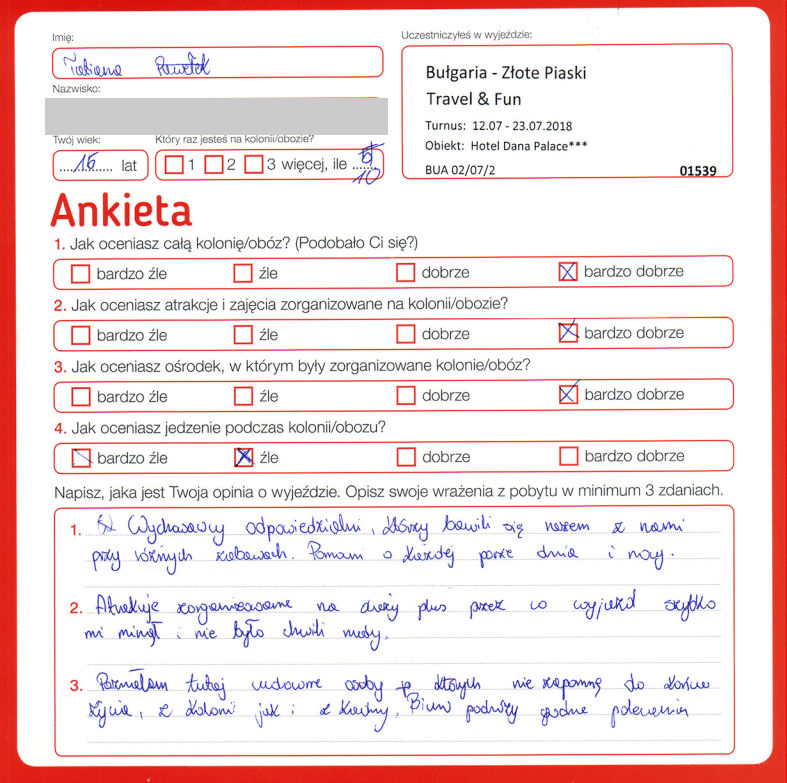 Imię:
Tatiana
Nazwisko:
Twój wiek:
Który raz jesteś na kolonii/obozie?
....16...... lat
1 2 3 więcej, ile ......
10
Uczestniczyłeś w wyjeździe:
Bułgaria - Złote Piaski
Travel & Fun
Turnus: 12.07 - 23.07.2018
Obiekt: Hotel Dana Palace***
BUA 02/07/2 01539
Ankieta
1. Jak oceniasz całą kolonię/obóz? (Podobało Ci się?)
bardzo źle źle dobrze bardzo dobrze
2. Jak oceniasz atrakcje i zajęcia zorganizowane na kolonii/obozie?
bardzo źle źle dobrze bardzo dobrze
3. Jak oceniasz ośrodek, w którym były zorganizowane kolonie/obóz?
bardzo źle źle dobrze bardzo dobrze
4. Jak oceniasz jedzenie podczas kolonii/obozu?
bardzo źle źle dobrze bardzo dobrze
Napisz, jaka jest Twoja opinia o wyjeździe. Opisz swoje wrażenia z pobytu w minimum 3 zdaniach.
1. Wychowawcy odpowiedzialni, którzy bawili się razem z nami
przy różnych zabawach. Pomoc o każdej porze dnia i nocy.
2. Atrakcje zorganizowane na duży plus przez co wyjazd szybko
mi minął i nie było chwili nudy.
3. Poznałam tutaj cudowne osoby o których nie zapomnę do końca
życia, z kolonii jak i z kadry. Biuro podróży godne polecenia